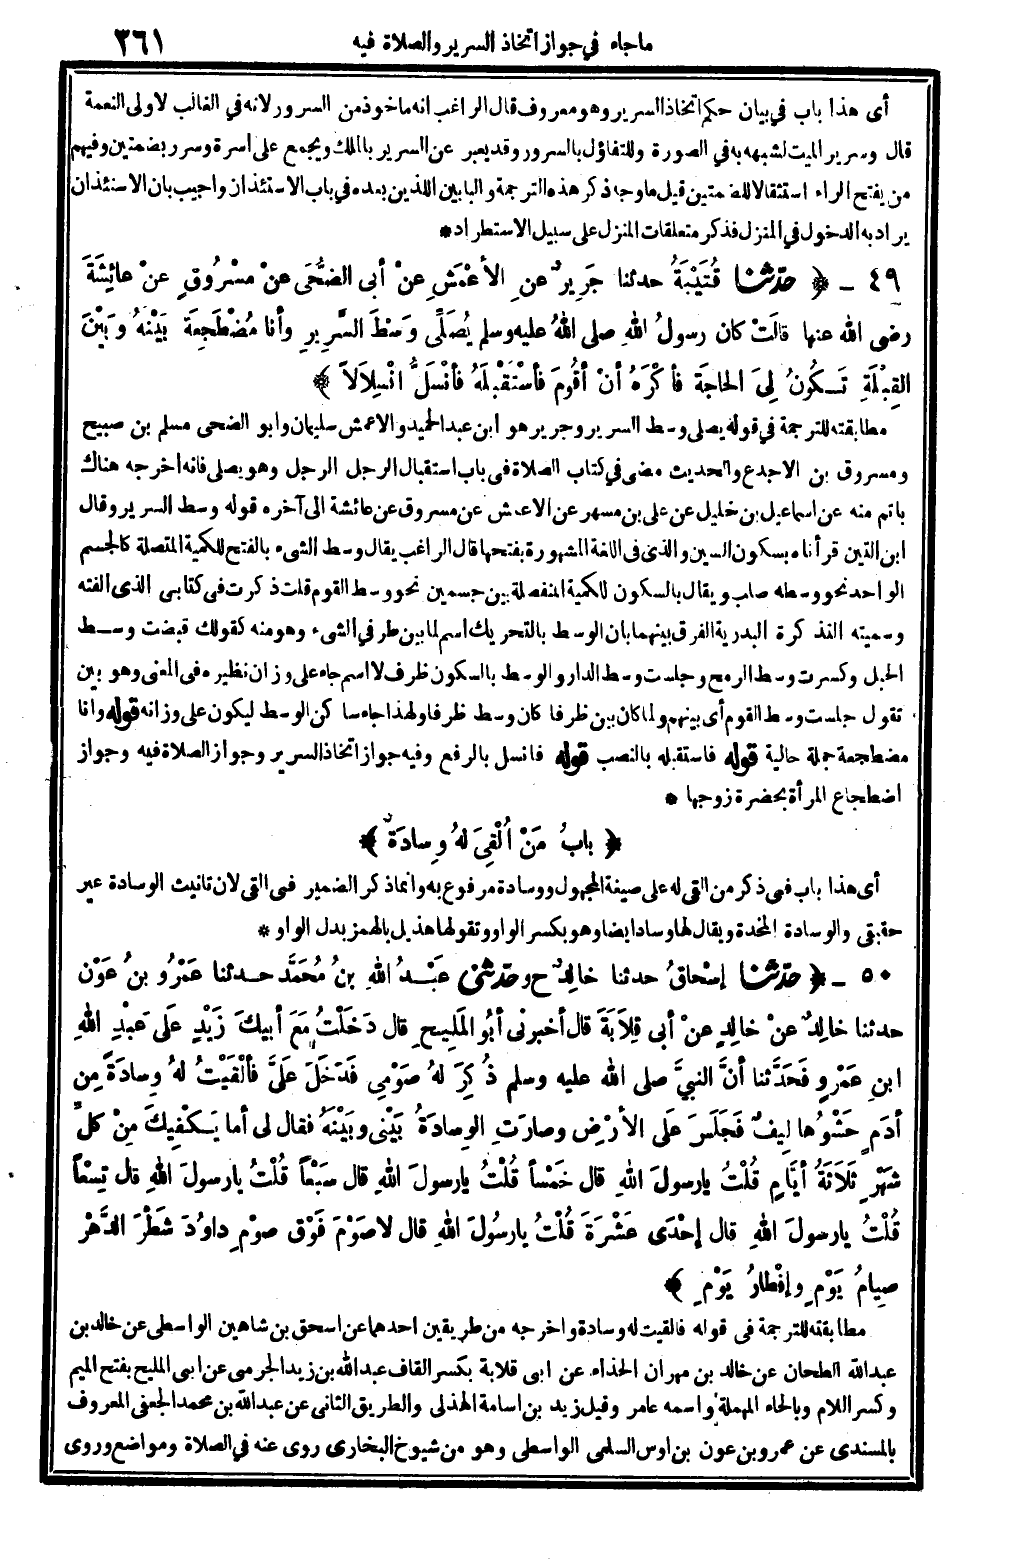 ماجاء في جواز اتخاذ السرير والصلاة فيه ٣٦١
أى هذا باب في بيان حكم اتخاذ السرير وهو معروف قال الراغب انه ماخوذ من السرور لانه في الغالب لاولى النعمة
قال وسرير الميت لشبهه به في الصورة وللتفاؤل بالسرور وقد يعبر عن السرير بالملك ويجمع على اسرة وسرر بضمتين وفيهم
من يفتح الراء استثقالا للضمتين قيل ما وجه ذكر هذه الترجمة والبابين اللذين بعده في باب الاستئذان واجيب بان الاستئذان
يراد به الدخول في المنزل فذكر متعلقات المنزل على سبيل الاستطراد *
٤٩ ـ ﴿ حَدَّثَنَا قُتَيْبَةُ حدثنا جَرِيرٌ عنِ الأعْمَشِ عنْ أبى الضُّحَى عنْ مَسْرُوقٍ عنْ عائِشَةَ
رضى الله عنها قالَتْ كان رسولُ اللهِ صلى اللهُ عليه وسلم يُصَلِّى وَسَطَ السَّرِيرِ وأنا مُضْطَجِعَةٌ بَيْنَهُ وبَيْنَ
القِبْلَةِ تَـكُونُ لِىَ الحاجَةُ فأكْرَهُ أنْ أقُومَ فأسْتَقْبِلَهُ فأنْسَلُّ انْسِلاَلاً ﴾
مطابقته للترجمة في قوله يصلى وسط السرير وجرير هو ابن عبد الحميد والاعمش سليمان وابو الضحى مسلم بن صبيح
ومسروق بن الاجدع والحديث مضى في كتاب الصلاة فى باب استقبال الرجل الرجل وهو يصلى فانه اخرجه هناك
باتم منه عن اسماعيل بن خليل عن على بن مسهر عن الاعمش عن مسروق عن عائشة الى آخره قوله وسط السرير وقال
ابن التين قرأناه بسكون السين والذى فى اللغة المشهورة بفتحها قال الراغب يقال وسط الشىء بالفتح للكمية المتصلة كالجسم
الواحد نحو وسطه صلب ويقال بالسكون للكمية المنفصلة بين جسمين نحو وسط القوم قلت ذكرت فى كتابى الذى الفته
وسميته التذكرة البدرية الفرق بينهما بان الوسط بالتحريك اسم لما بين طرفي الشىء وهو منه كقولك قبضت وسـط
الحبل وكسرت وسط الرمح وجلست وسط الدار والوسط بالسكون ظرف لا اسم جاء على وزان نظيره فى المعنى وهو بين
تقول جلست وسط القوم أى بينهم ولما كان بين ظرفا كان وسط ظرفا ولهذا جاء ساكن الوسط ليكون على وزانه قوله وانا
مضطجعة جملة حالية قوله فاستقبله بالنصب قوله فانسل بالرفع وفيه جواز اتخاذ السرير وجواز الصلاة فيه وجواز
اضطجاع المرأة بحضرة زوجها *
﴿ بابُ مَنْ أُلْقِىَ لهُ وِسادَةٌ ﴾
أى هذا باب فى ذكر من القى له على صيغة المجهول ووسادة مرفوع به وانما ذكر الضمير فى القى لان تانيث الوسادة غير
حقيقى والوسادة المخدة ويقال لها وساد ايضا وهو بكسر الواو وتقولها هذيل بالهمز بدل الواو *
٥٠ ـ ﴿ حَدَّثَنَا إسْحاقُ حدثنا خالِدٌ ح وحَدَّثَنِى عَبْـدُ اللهِ بنُ مُحَمَّدٍ حـدثنا عَمْرُو بنُ عَوْنٍ
حدثنا خالِدٌ عنْ خالِدٍ عنْ أبى قِلاَبَةَ قال أخبرنى أبُو المَلِيحِ قال دَخَلْتُ مَعَ أبِيكَ زَيْدٍ علَى عَبْدِ اللهِ
ابنِ عَمْرٍو فَحَدَّثَنا أنَّ النبيَّ صلى الله عليه وسلم ذُكِرَ لهُ صَوْمِى فَدَخَلَ عَلَىَّ فألْقَيْتُ لهُ وِسادَةً مِنْ
أدَمٍ حَشْوُها لِيفٌ فَجَلَسَ علَى الأرْضِ وصارَتِ الوِسادَةُ بَيْنِى وبَيْنَهُ فقال لى أما يَـكْفِيكَ مِنْ كلِّ
شَهْرٍ ثَلاَثَةُ أيَّامٍ قُلْتُ يارسولَ اللهِ قال خَمْساً قُلْتُ يارسولَ اللهِ قال سَبْعاً قُلْتُ يارسولَ اللهِ قال تِسْعاً
قُلْتُ يارسولَ اللهِ قال إحْدَى عَشْرَةَ قُلْتُ يارسُولَ اللهِ قال لاصَوْمَ فَوْقَ صوْمِ داوُدَ شَطْرَ الدَّهْرِ
صِيامُ يَوْمٍ وإفْطارُ يَوْمٍ ﴾
مطابقته للترجمة فى قوله فالقيت له وسادة واخرجه من طريقين احدهما عن اسحق بن شاهين الواسطى عن خالد بن
عبدالله الطحان عن خالد بن مهران الحذاء عن ابى قلابة بكسر القاف عبدالله بن زيد الجرمى عن ابى المليح بفتح الميم
وكسر اللام وبالحاء المهملة واسمه عامر وقيل زيد بن اسامة الهذلى والطريق الثانى عن عبدالله بن محمد الجعفى المعروف
بالمسندى عن عمرو بن عون بن اوس السلمى الواسطى وهو من شيوخ البخارى روى عنه في الصلاة ومواضع وروى